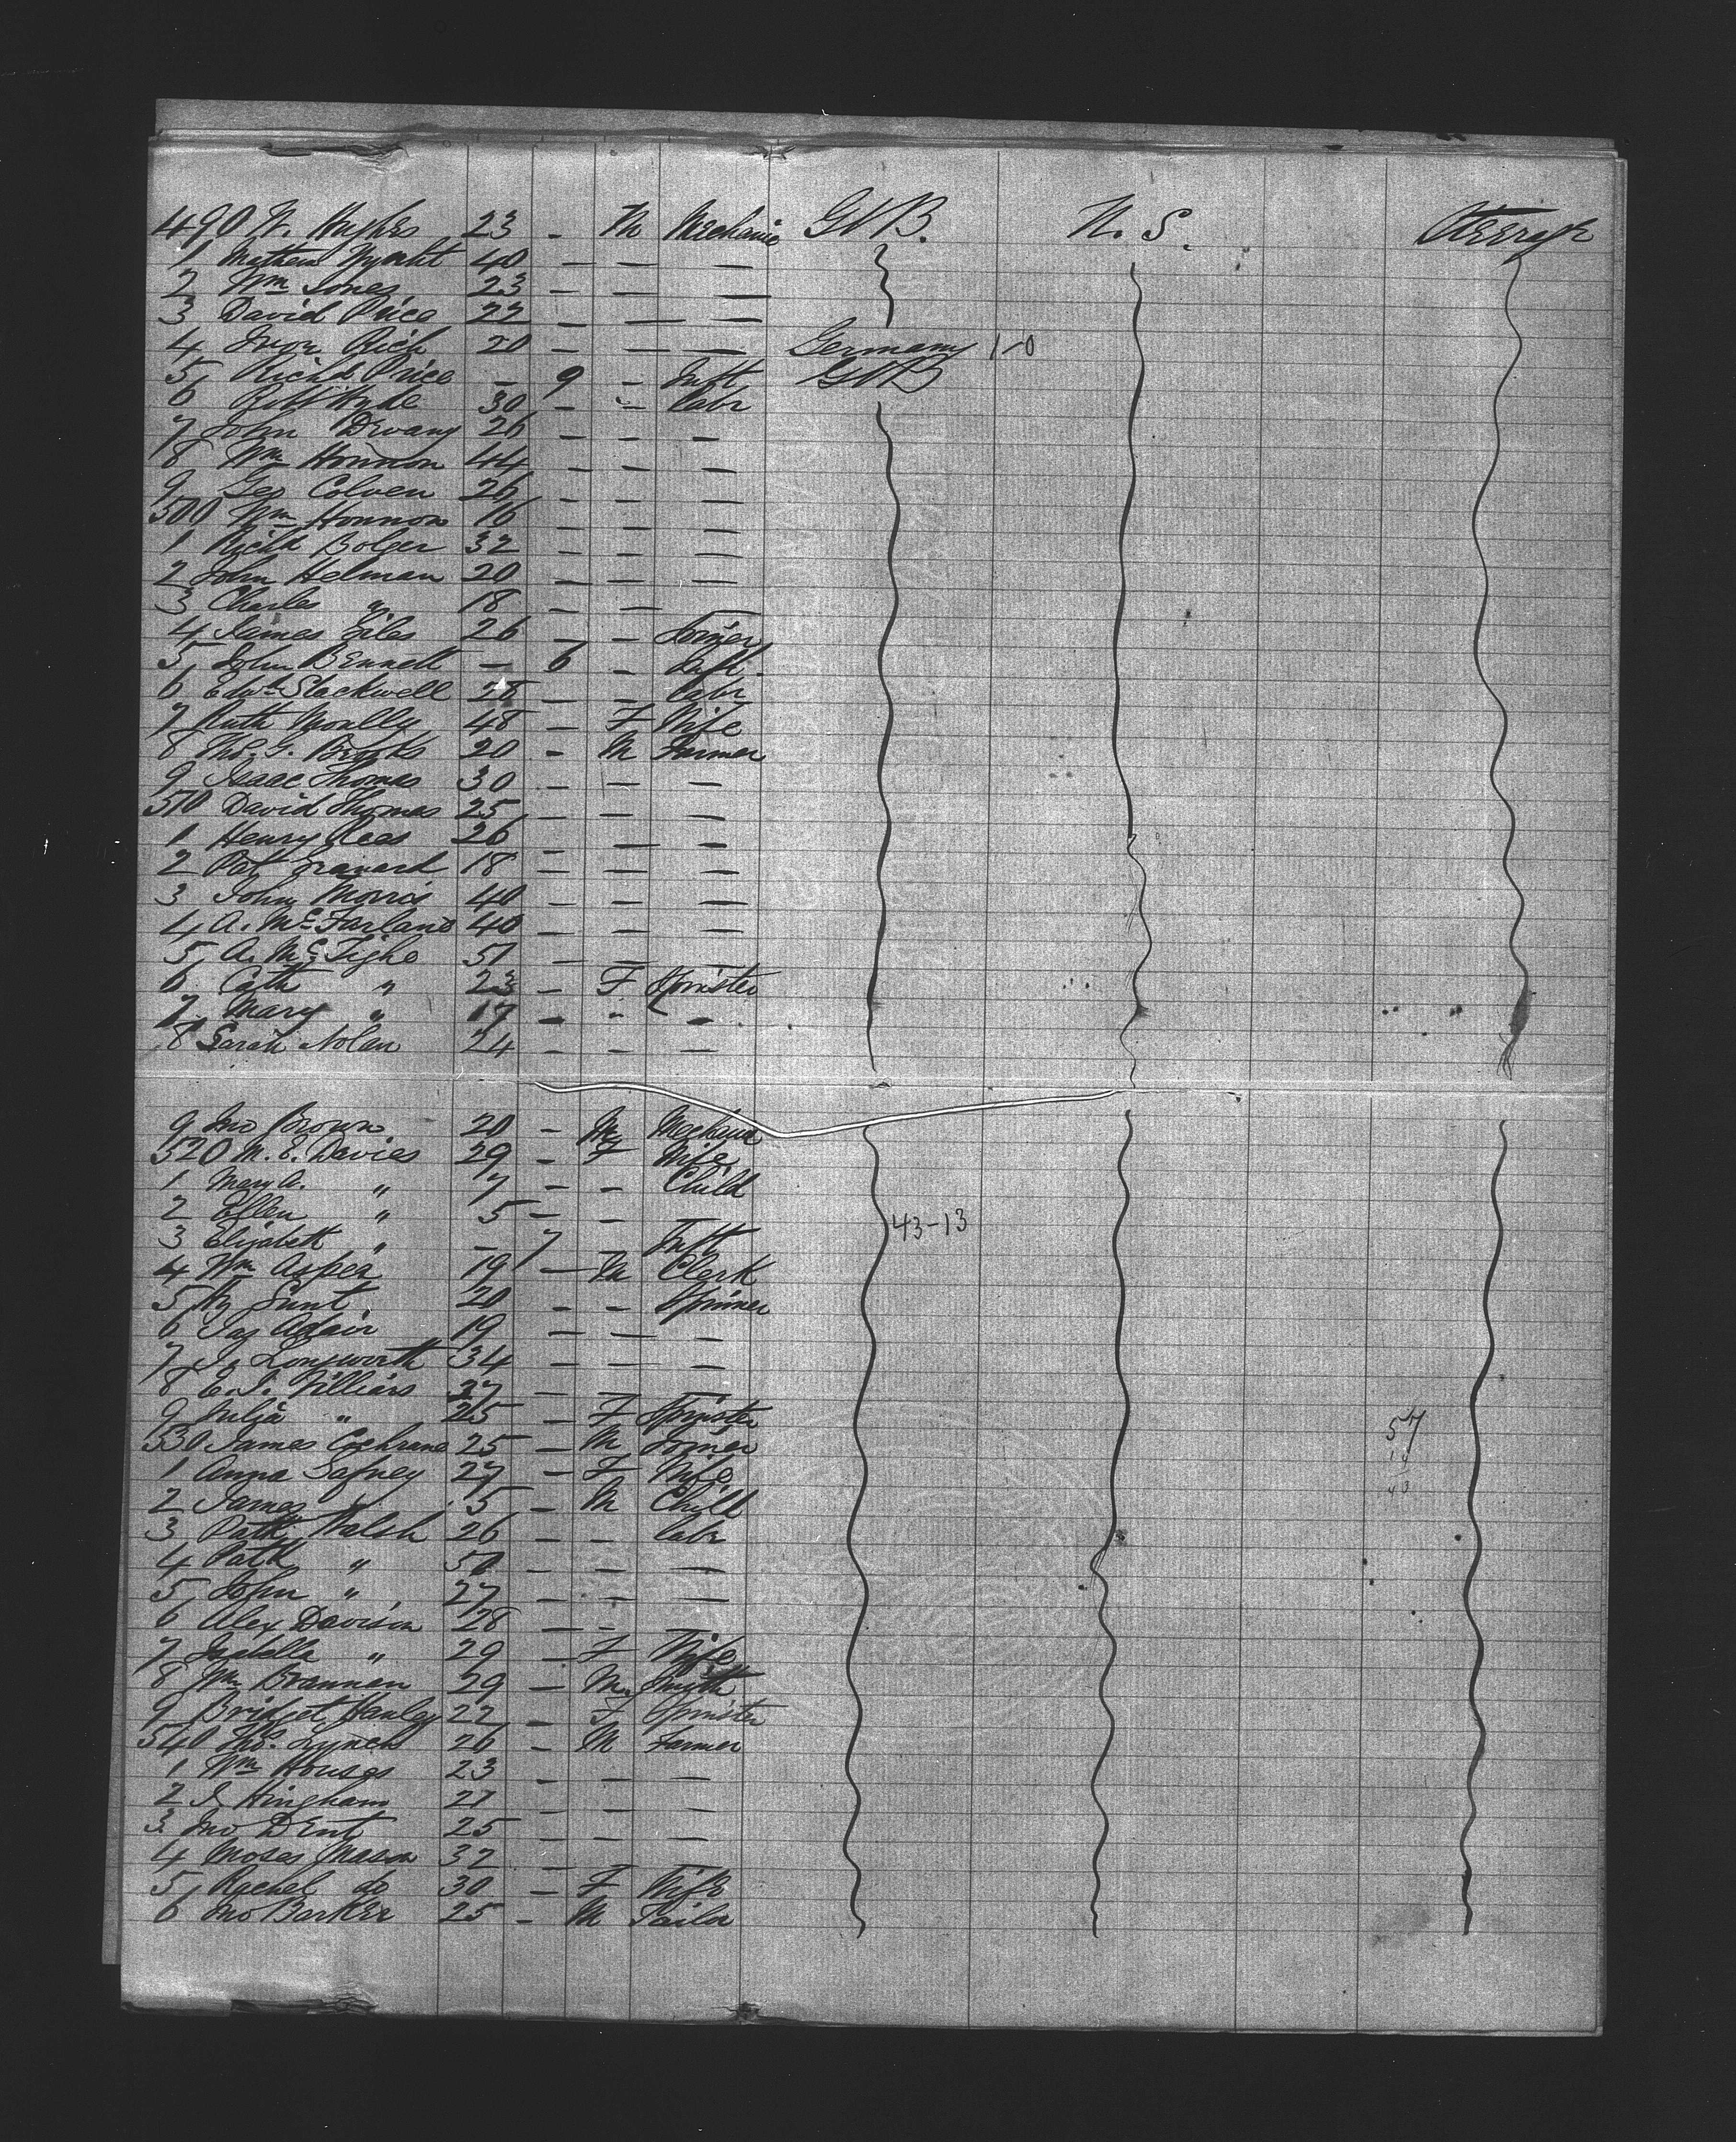 490 W. Hughes 23 - M Mechanic G.B. U.S. Steerage
1 Mathew Wyatt 40 - - -
2 Wm Jones 23 - - -
3 David Price 22 - - -
4 Rich 20 - - - Germany 1-0
5 Richd Price - 9 - Inft GB
6 Robt Hyde 30 - - Labr
7 John 26 - - -
8 Wm Honnon 44 - - -
9 Geo Colven 26 - - -
500 Wm Honnon 16 - - -
1 Richd Bolger 32 - - -
2 John Helman 20 - - -
3 Charles " 18 - - -
4 James Giles 26 - -
5 John Bennett - 6 - Inft
6 Edwd Stockwell 28 - - Labr
7 Ruth 48 - F Wife
8 Ths. G. Brooks 20 - M Farmer
9 Isaac Thomas 30 - - -
510 David Thomas 25 - - -
1 Henry Rees 26 - - -
2 Pat 18 - - -
3 John Morris 40 - - -
4 A. McFarland 40 - - -
5 A. McTighe 51 - - -
6 Cath " 23 - F Spinster
7 Mary " 17 - - -
8 Sarah Nolan 24 - - -
9 Jno Brown 20 - M
320 M. E. Davies 29 - F Wife
1 Mary A. " 7 - - Child
2 Ellen " 5 - - -
3 Elizabeth " - 7 - Inft 43-13
4 Wm 19 - M Clerk
5 Hy 20 - - Spinner
6 Jas Adair 19 - - -
7 J. Longworth 34 - - -
8 E. J. 27 - - -
9 Julia " 25 - F Spinster 57
530 James Cochrane 25 - M
1 Anna Gafney 27 - F Wife
2 James " 5 - M Child
3 Patk Walsh 26 - - Labr
4 Patk " 50 - - -
5 John " 27 - - -
6 Alex Davison 28 - - -
7 Isabella " 29 - F Wife
8 Wm Brannan 29 - M. Smith
9 Bridget Hanley 22 - F Spinster
540 Ths. Lynch 26 - M Farmer
1 Wm Houses 23 - - -
2 J. Hingham 27 - - -
3 Jno Dent 25 - - -
4 Moses Mason 32 - - -
5 Rachel do 30 - F Wife
6 Jno Barker 25 - M Tailor